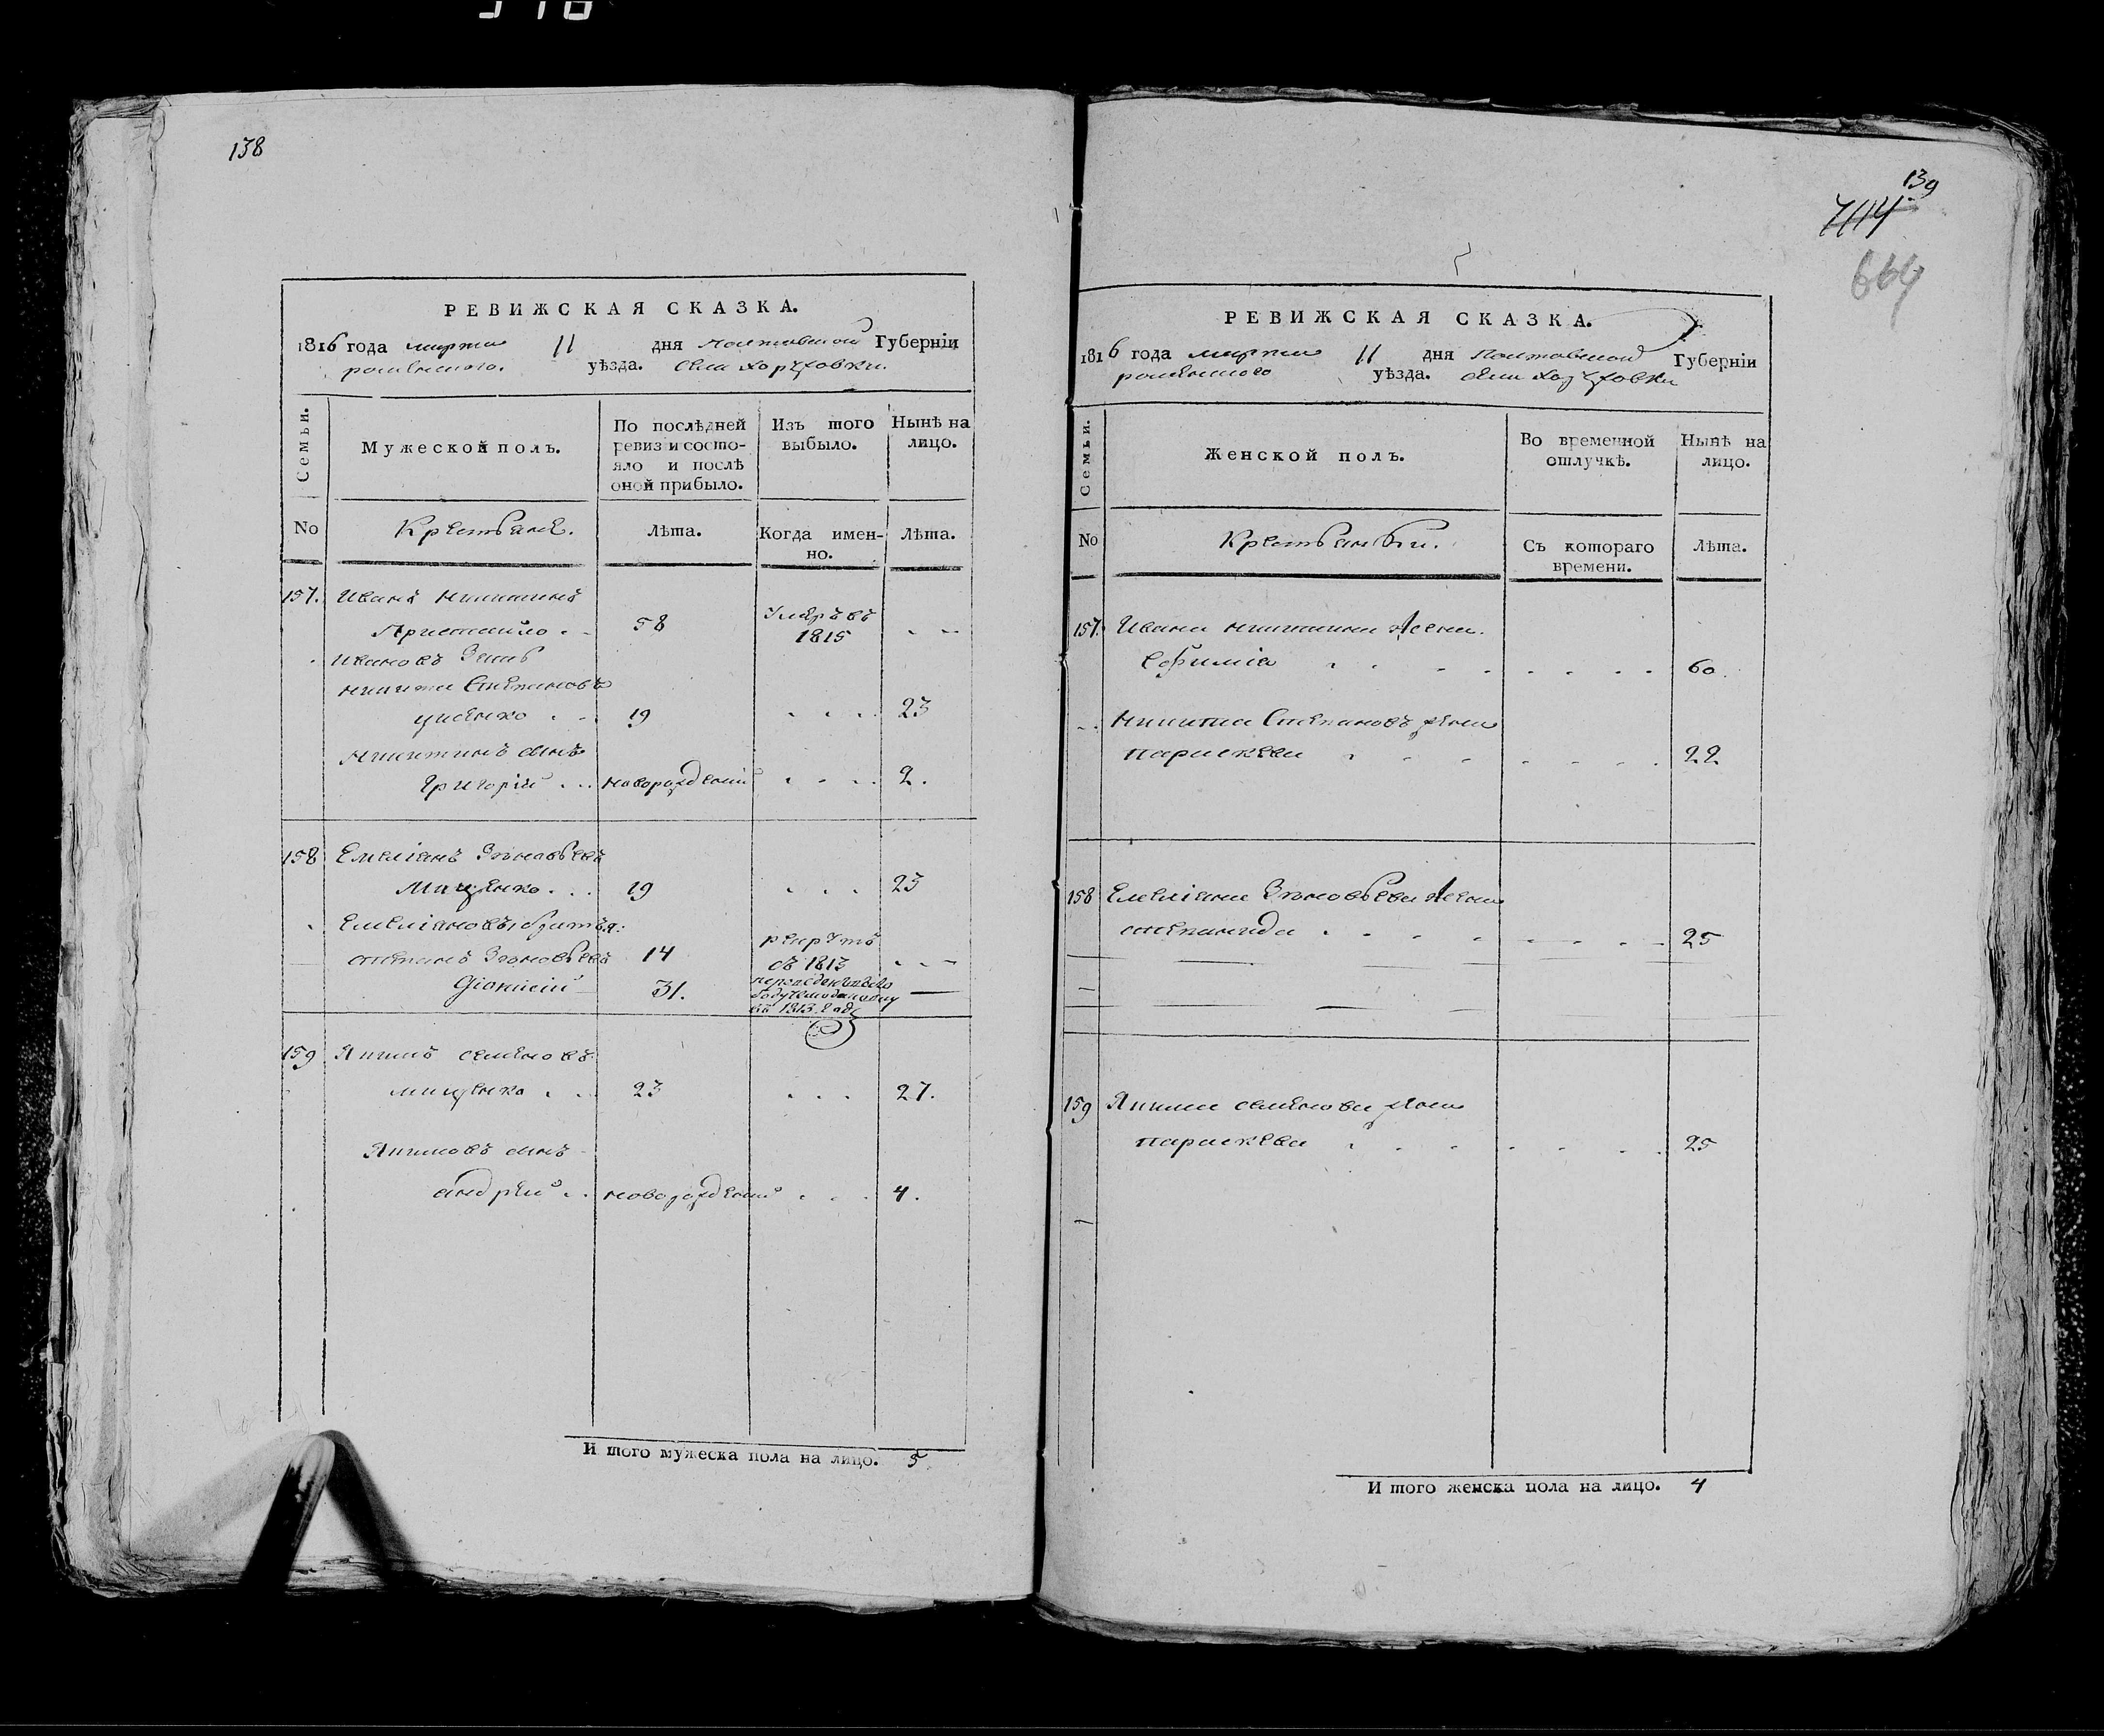 138
РЕВИЖСКАЯ СКАЗКА.
1816 года марта 11 дня Полтавской Губерніи
роменского. уѣзда. села
Семьи.
Мужеской полъ.
По послѣдней ревизіи состояло и послѣ оной прибыло.
Изъ того выбыло.
Нынѣ на лицо.
No
Крестьяне.
Лѣта.
Когда именно.
Лѣта.
157. Иванъ Никитинъ
58 Умеръ въ 1815
Ивановъ Зять
Никита Степановъ
19 23
Никитинъ сынъ
Григорій новорожденій 2.
158 Емеліанъ Зѣновьевъ
Мищенко 19 23
Емеліановы братья:
степанъ Зѣновьевъ 14 рекрутъ съ 1813
Діонисій 31.
въ 1813 годѣ
159 Якимъ семеновъ
мищенко 23 27.
Якимовъ сынъ
андрей новорожденій 4.
И того мужеска пола на лицо. 5
139
664
РЕВИЖСКАЯ СКАЗКА.
1816 года марта 11 дня Полтавской Губерніи
роменского уѣзда. села
Семьи.
Женской полъ.
Во временной отлучкѣ.
Нынѣ на лицо.
No
Крестьянки.
Съ котораго времени.
Лѣта.
157. Ивана никитина жена
Ефимія 60.
Никиты Степановъ жена
параскева 22
158 Емеліана Зѣновьева жена
степанида 25
159 Якима семенова жена
параскева 25
И того женска пола на лицо. 4